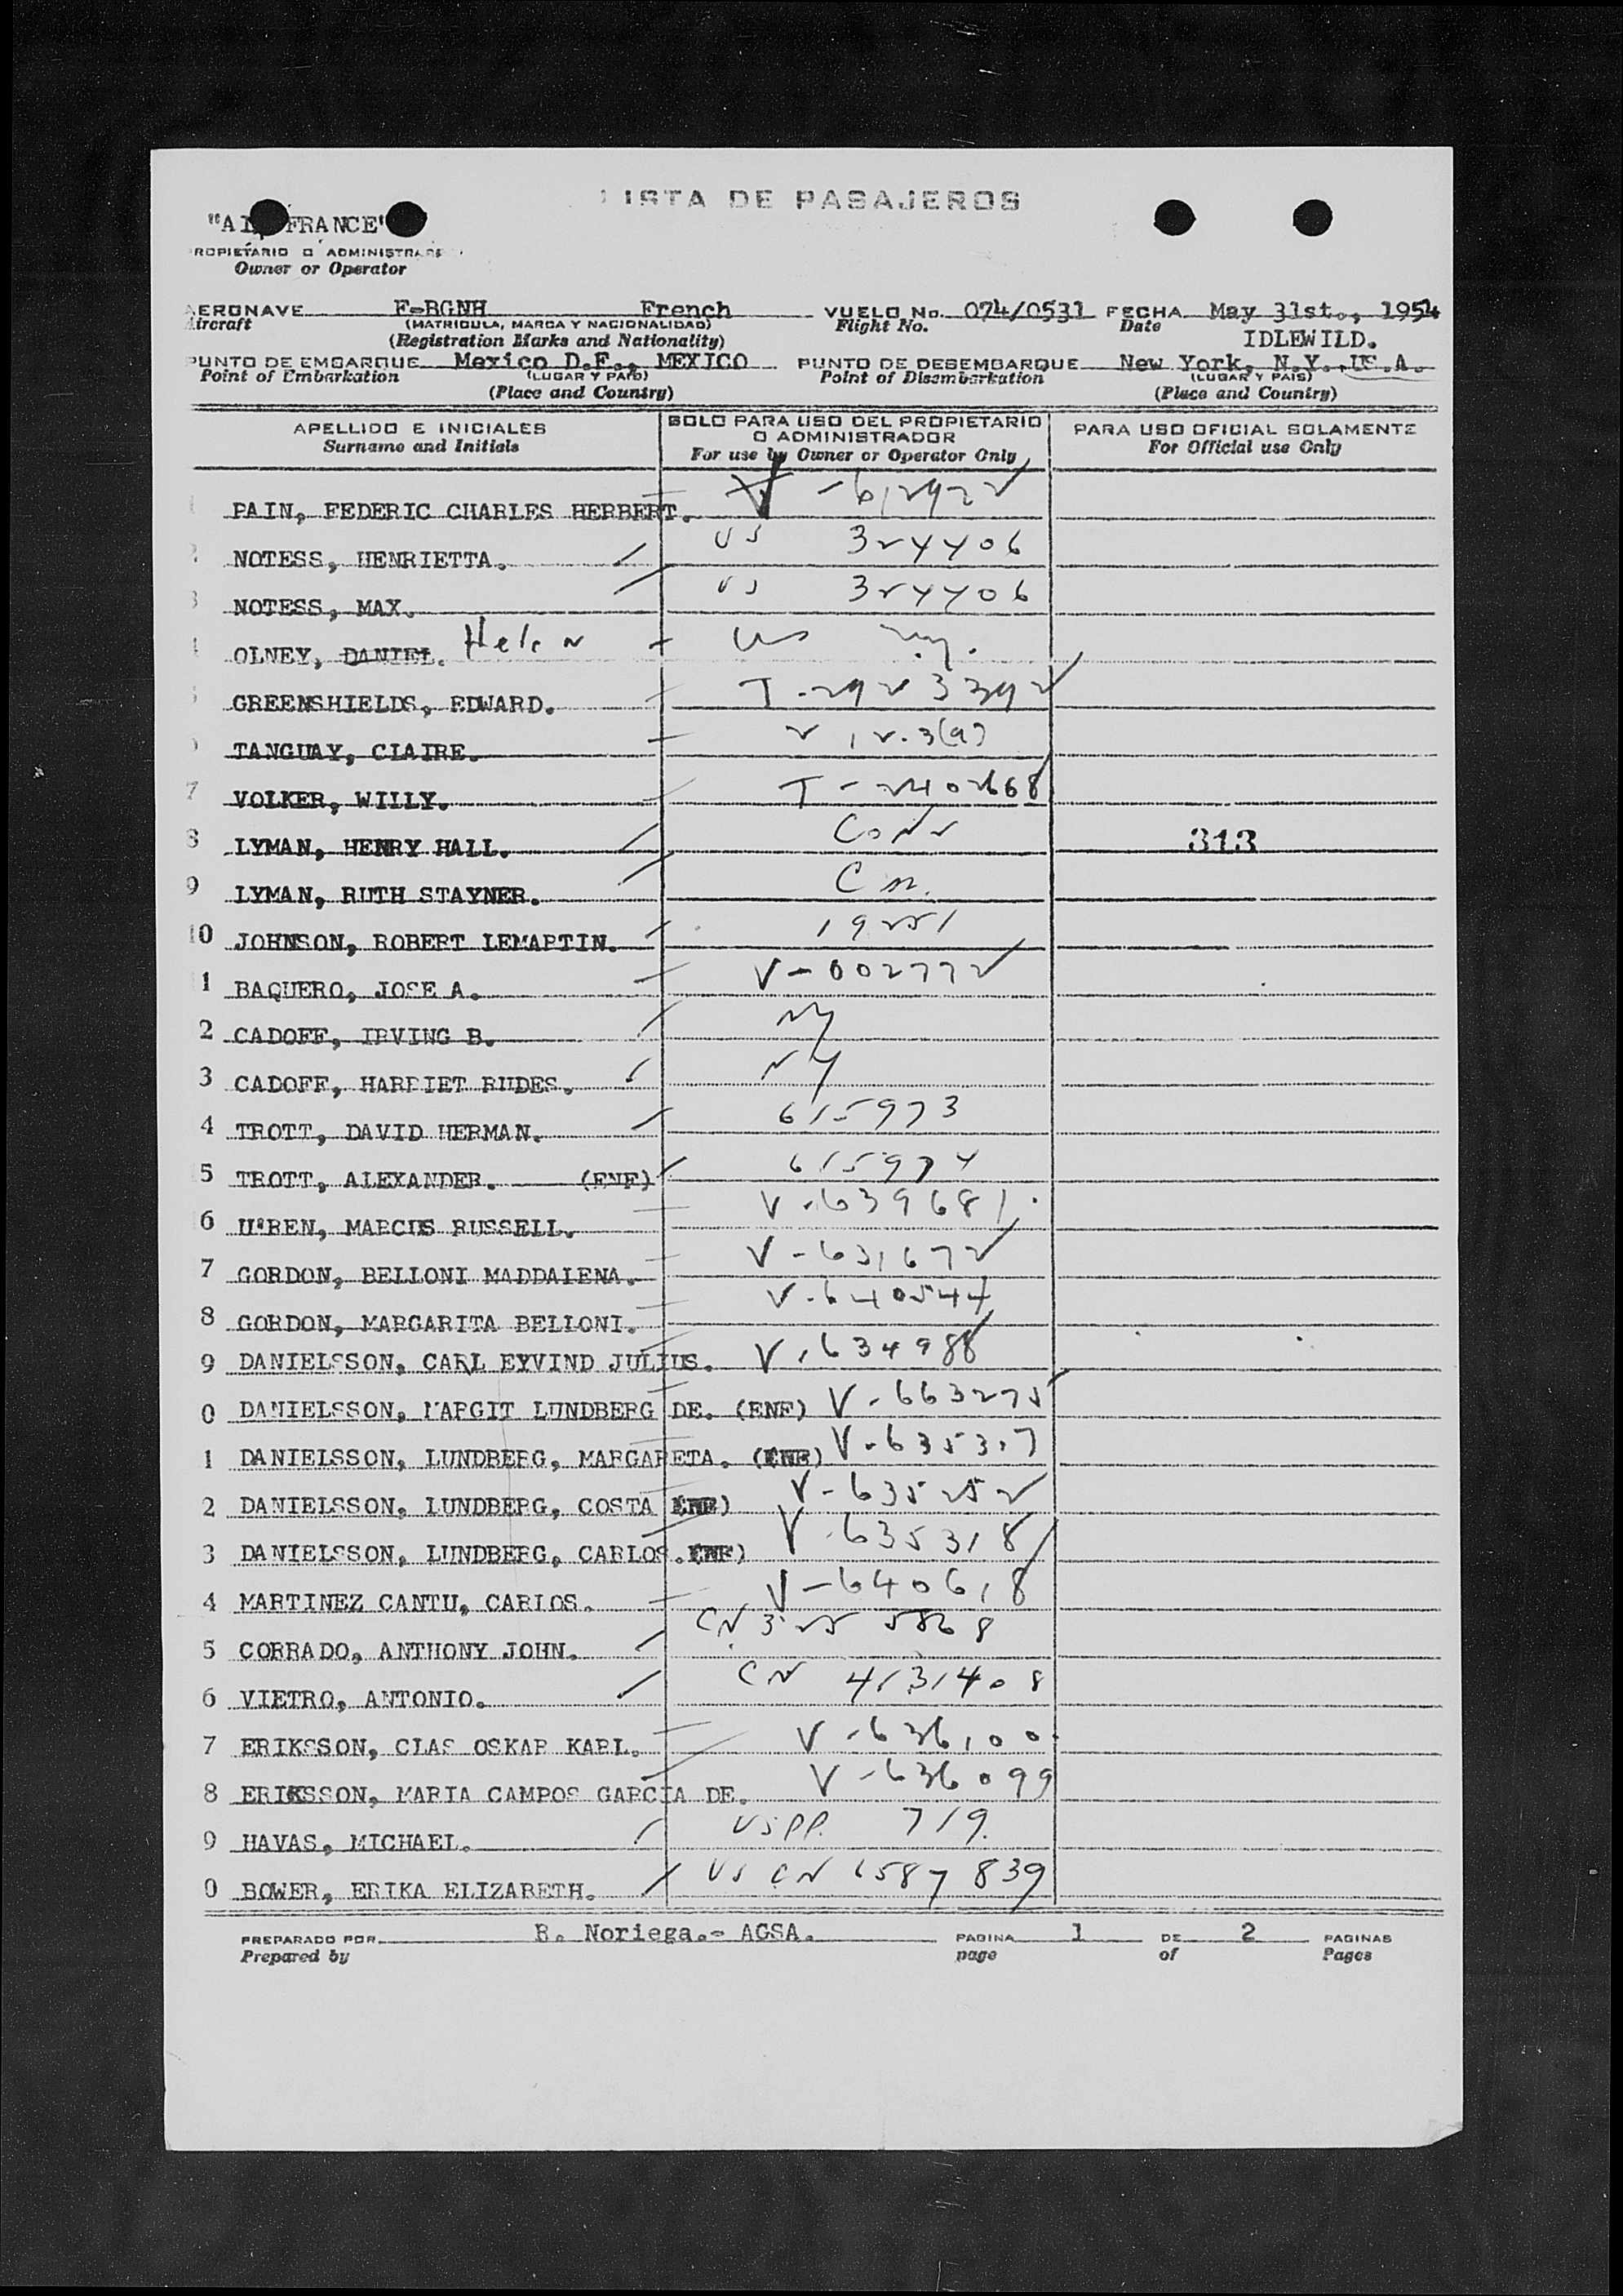 LISTA DE PASAJEROS
"AIR FRANCE"
PROPIETARIO O ADMINISTRADOR
Owner or Operator
AERONAVE F-BGNH French VUELO No. 074/0531 FECHA May 31st., 1954
Aircraft (MATRICULA, MARCA Y NACIONALIDAD) Flight No. Date
(Registration Marks and Nationality) IDLEWILD.
PUNTO DE EMBARQUE Mexico D.F., MEXICO PUNTO DE DESEMBARQUE New York, N.Y., US.A.
Point of Embarkation (LUGAR Y PAIS) Point of Disembarkation (LUGAR Y PAIS)
(Place and Country) (Place and Country)
APELLIDO E INICIALES SOLO PARA USO DEL PROPIETARIO O ADMINISTRADOR PARA USO OFICIAL SOLAMENTE
Surname and Initials For use by Owner or Operator Only For Official use Only
1 PAIN, FEDERIC CHARLES HERBERT. V-612922
2 NOTESS, HENRIETTA. US 324406
3 NOTESS, MAX. US 324406
4 OLNEY, DANIEL. Helen US N.Y.
5 GREENSHIELDS, EDWARD. T-2923392
TANGUAY, CLAIRE.
7 VOLKER, WILLY. T-2402668
8 LYMAN, HENRY HALL. Conn 313
9 LYMAN, RUTH STAYNER. Cn.
10 JOHNSON, ROBERT LEMARTIN. 19251
1 BAQUERO, JOSE A. V-002772
2 CADOFF, IRVING B. NY
3 CADOFF, HARRIET RUDES. NY
4 TROTT, DAVID HERMAN. 615973
5 TROTT, ALEXANDER. (ENF) 615974
6 U'REN, MARCUS RUSSELL. V-639681
7 GORDON, BELLONI MADDALENA. V-631672
8 GORDON, MARGARITA BELLONI. V-640544
9 DANIELSSON, CARL EYVIND JULIUS. V-634988
0 DANIELSSON, MARGIT LUNDBERG DE. (ENF) V-663275
1 DANIELSSON, LUNDBERG, MARGARETA. (ENF) V-635317
2 DANIELSSON, LUNDBERG, COSTA (ENF) V-635252
3 DANIELSSON, LUNDBERG, CARLOS. (ENF) V-635318
4 MARTINEZ CANTU, CARLOS. V-640618
5 CORRADO, ANTHONY JOHN. CN 325 5868
6 VIETRO, ANTONIO. CN 4131408
7 ERIKSSON, CLAS OSKAR KARL. V-636100
8 ERIKSSON, MARIA CAMPOS GARCIA DE. V-636099
9 HAVAS, MICHAEL. US PP. 719.
0 BOWER, ERIKA ELIZABETH. US CN 6587839
PREPARADO POR B. Noriega.- AGSA. PAGINA 1 DE 2 PAGINAS
Prepared by page of Pages